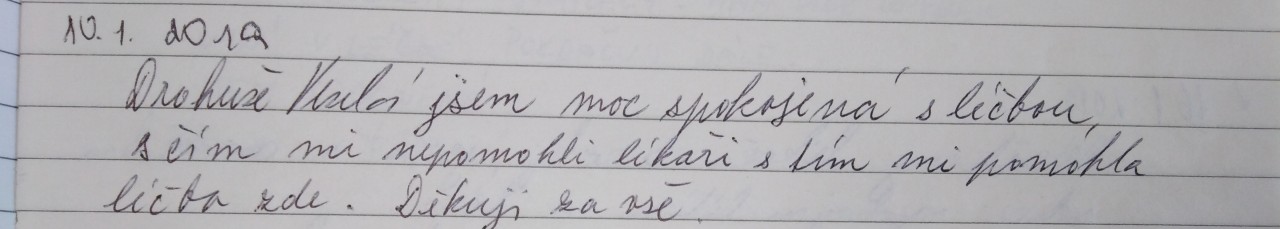 10. 1. 2019
Drahuše jsem moc spokojená s léčbou,
s čím mi nepomohli lékaři s tím mi pomohla
léčba zde. Děkuji za vše.